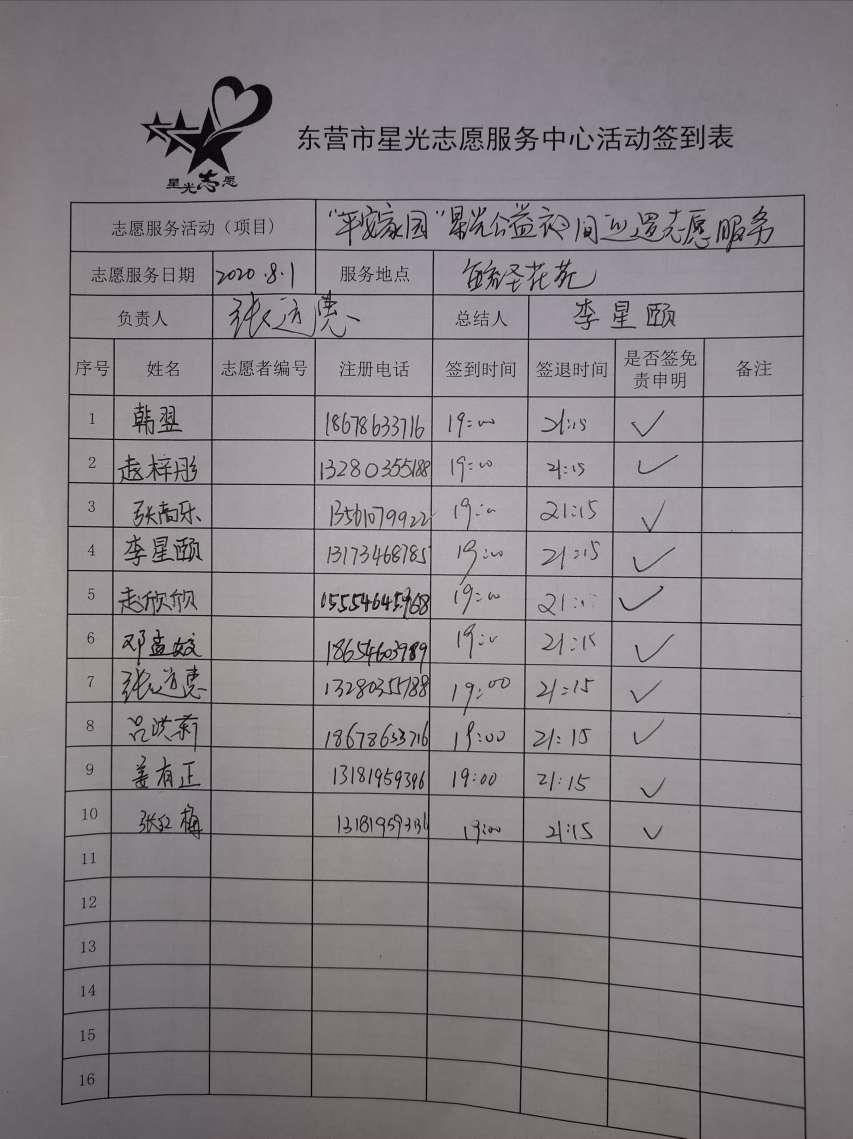 星光志愿
东营市星光志愿服务中心活动签到表
志愿服务活动（项目） “平安家园”星光公益夜间巡逻志愿服务
志愿服务日期 2020.8.1 服务地点 花苑
负责人 张运惠 总结人 李星颐
序号 姓名 志愿者编号 注册电话 签到时间 签退时间 是否签免责申明 备注
1 韩翌 18678633716 19:00 21:15 ✓
2 赵梓彤 13280355188 19:00 21:15 ✓
3 13561079922 19:00 21:15 ✓
4 李星颐 13173468785 19:00 21:15 ✓
5 赵欣欣 05554645968 19:00 ✓
6 邓孟姣 18654603989 19:00 21:15 ✓
7 张运惠 13280355188 19:00 21:15 ✓
8 吕洪新 18678633716 19:00 21:15 ✓
9 姜有正 13181959396 19:00 21:15 ✓
10 张红梅 19:00 21:15 ✓
11
12
13
14
15
16